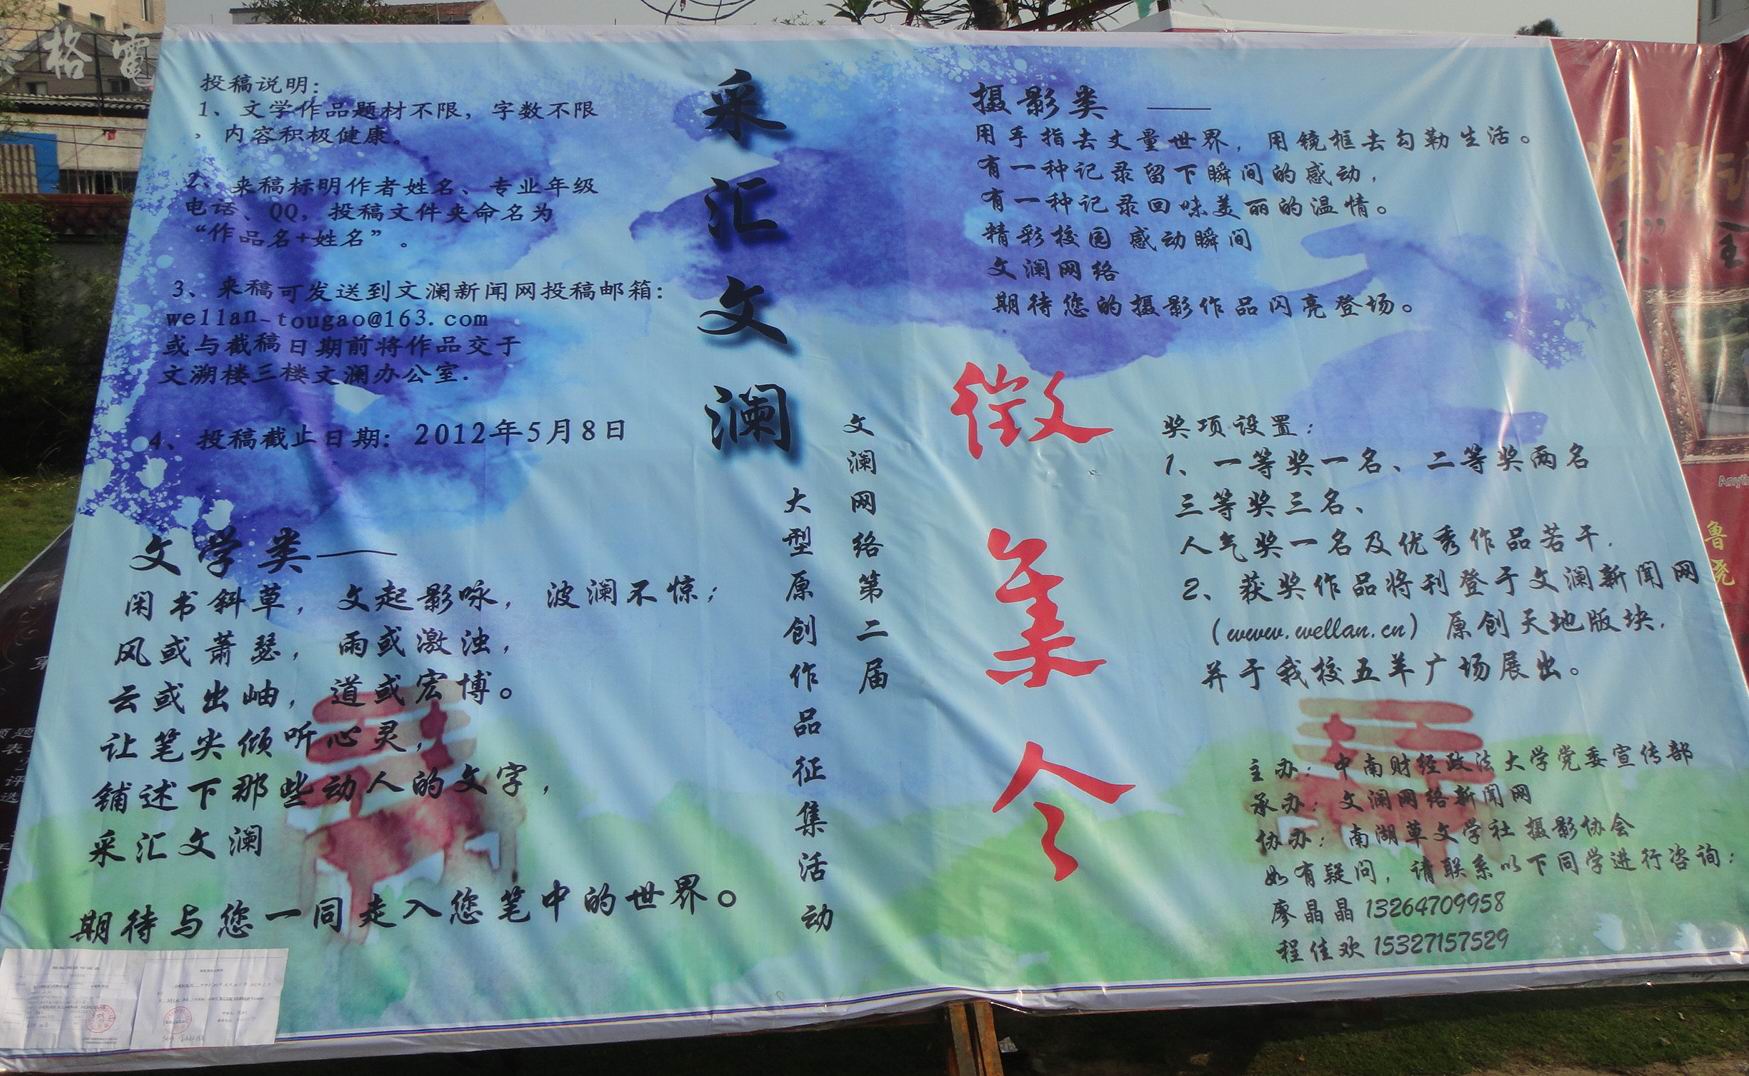 格雷
投稿说明：
1、文学作品题材不限，字数不限
，内容积极健康。
2、来稿标明作者姓名、专业年级
电话、QQ，投稿文件夹命名为
“作品名+姓名”。
3、来稿可发送到文澜新闻网投稿邮箱：
wellan-tougao@163.com
或与截稿日期前将作品交于
文溯楼三楼文澜办公室.
4、投稿截止日期：2012年5月8日
文学类——
闲书斜草，文起影咏，波澜不惊；
风或萧瑟，雨或激浊，
云或出岫，道或宏博。
让笔尖倾听心灵，
铺述下那些动人的文字，
采汇文澜
期待与您一同走入您笔中的世界。
采汇文澜
文澜网络第二届
大型原创作品征集活动
徵集令
摄影类 ——
用手指去丈量世界，用镜框去勾勒生活。
有一种记录留下瞬间的感动，
有一种记录回味美丽的温情。
精彩校园 感动瞬间
文澜网络
期待您的摄影作品闪亮登场。
奖项设置：
1、一等奖一名、二等奖两名
三等奖三名、
人气奖一名及优秀作品若干.
2、获奖作品将刊登于文澜新闻网
（www.wellan.cn）原创天地版块，
并于我校五羊广场展出。
主办：中南财经政法大学党委宣传部
承办：文澜网络新闻网
协办：南湖草文学社 摄影协会
如有疑问，请联系以下同学进行咨询：
廖晶晶 13264709958
程佳欢 15327157529